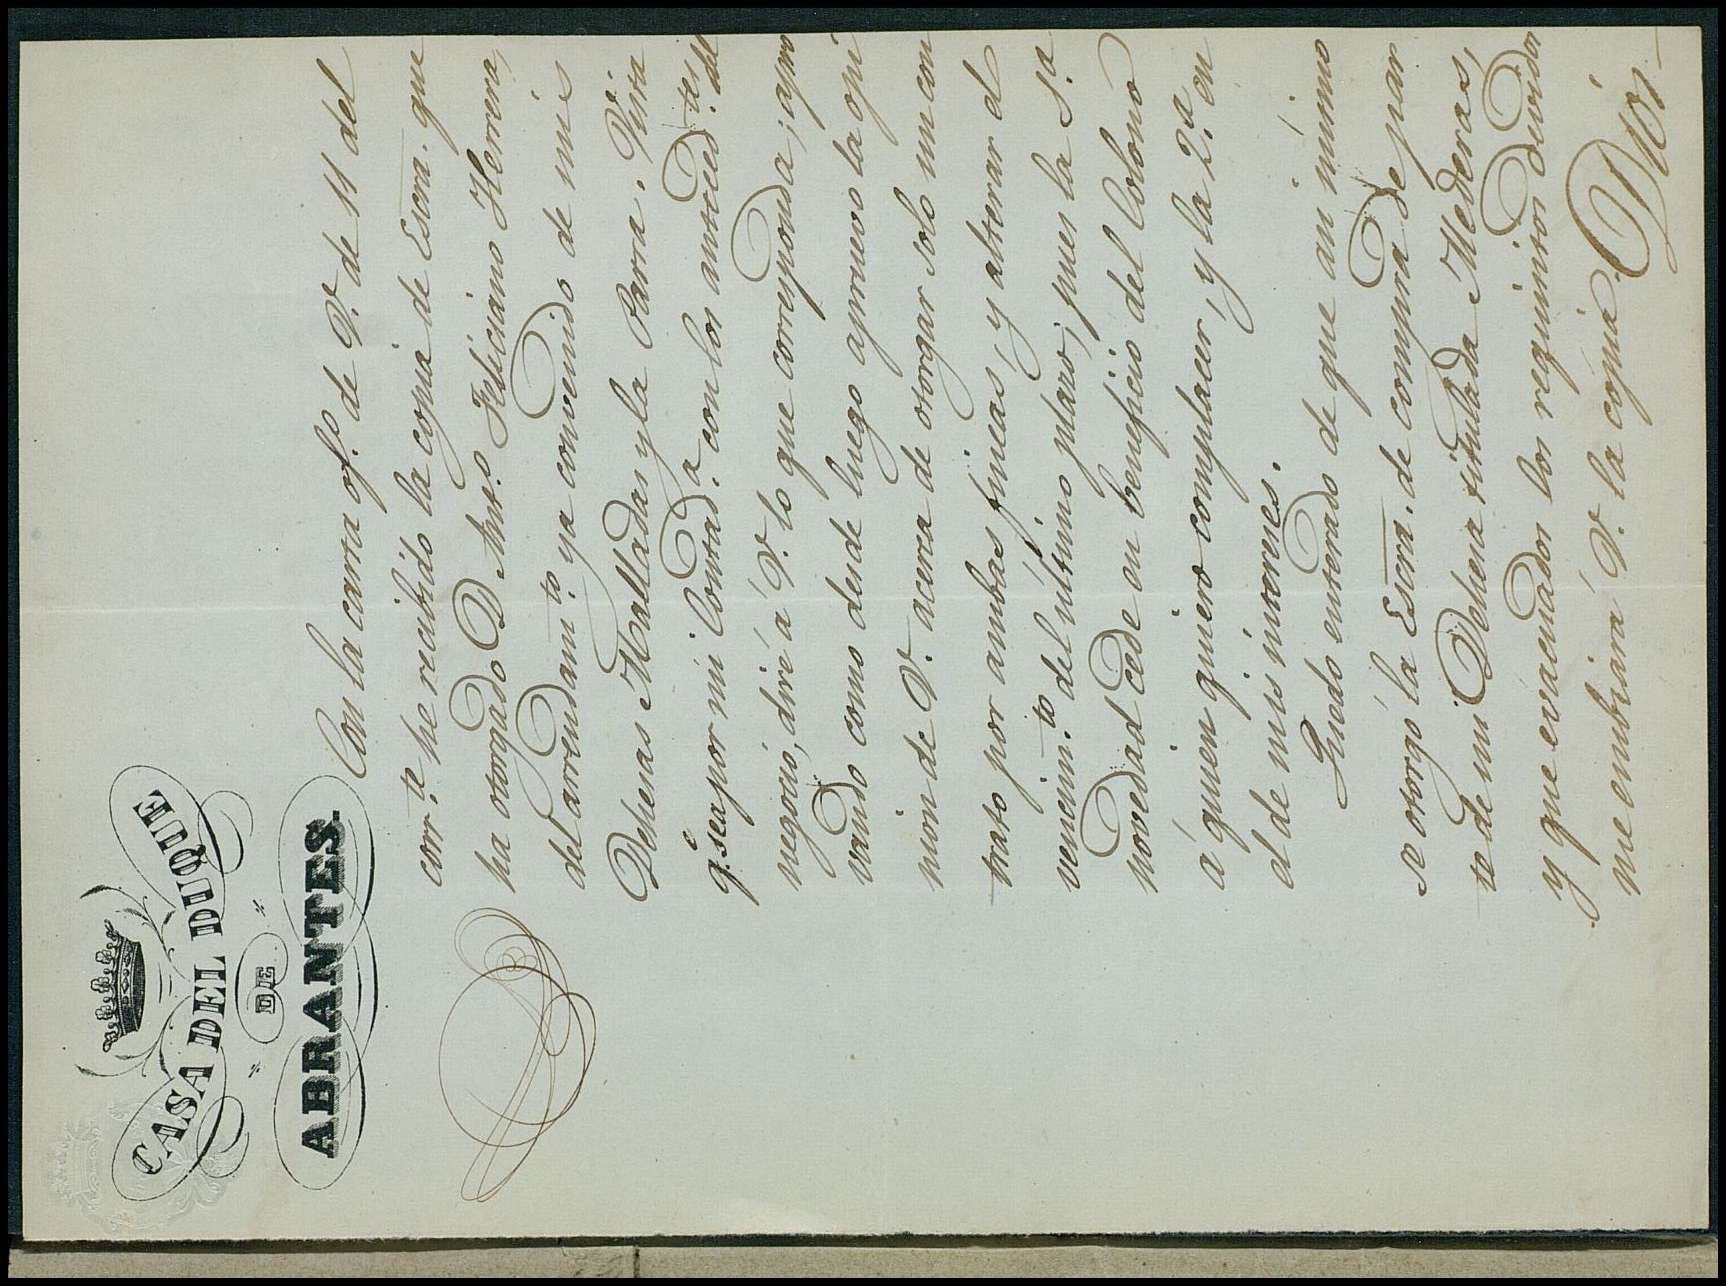 CASA DEL DUQUE
DE
ABRANTES.
Con la carta of.º de V. de 11 del
corr.te he recibido la copia de Escra. que
ha otorgado D. Ant.º Feliciano Herrera,
del arrendam.to ya convenido de mis
Dehesas Malladas y la Parra. Vista
q.e sea por mi Contad.a con los anteced.tes del
negocio, diré á V. lo que corresponda; apro
vando como desde luego apruevo la opi
nion de V. acerca de otorgar solo un con
trato por ambas fincas, y alterar el
vencim.to del ultimo plazo; pues la 1.a
novedad cede en beneficio del Colono
á quien quiero complacer, y la 2.a en
el de mis intereses.
Quedo enterado de que an mismo
se otorgó la Escra. de compra de par
te de mi Dehesa titulada Mederas,
y que evacuados los requisitos devidos
me embiará V. la cópia. Dios